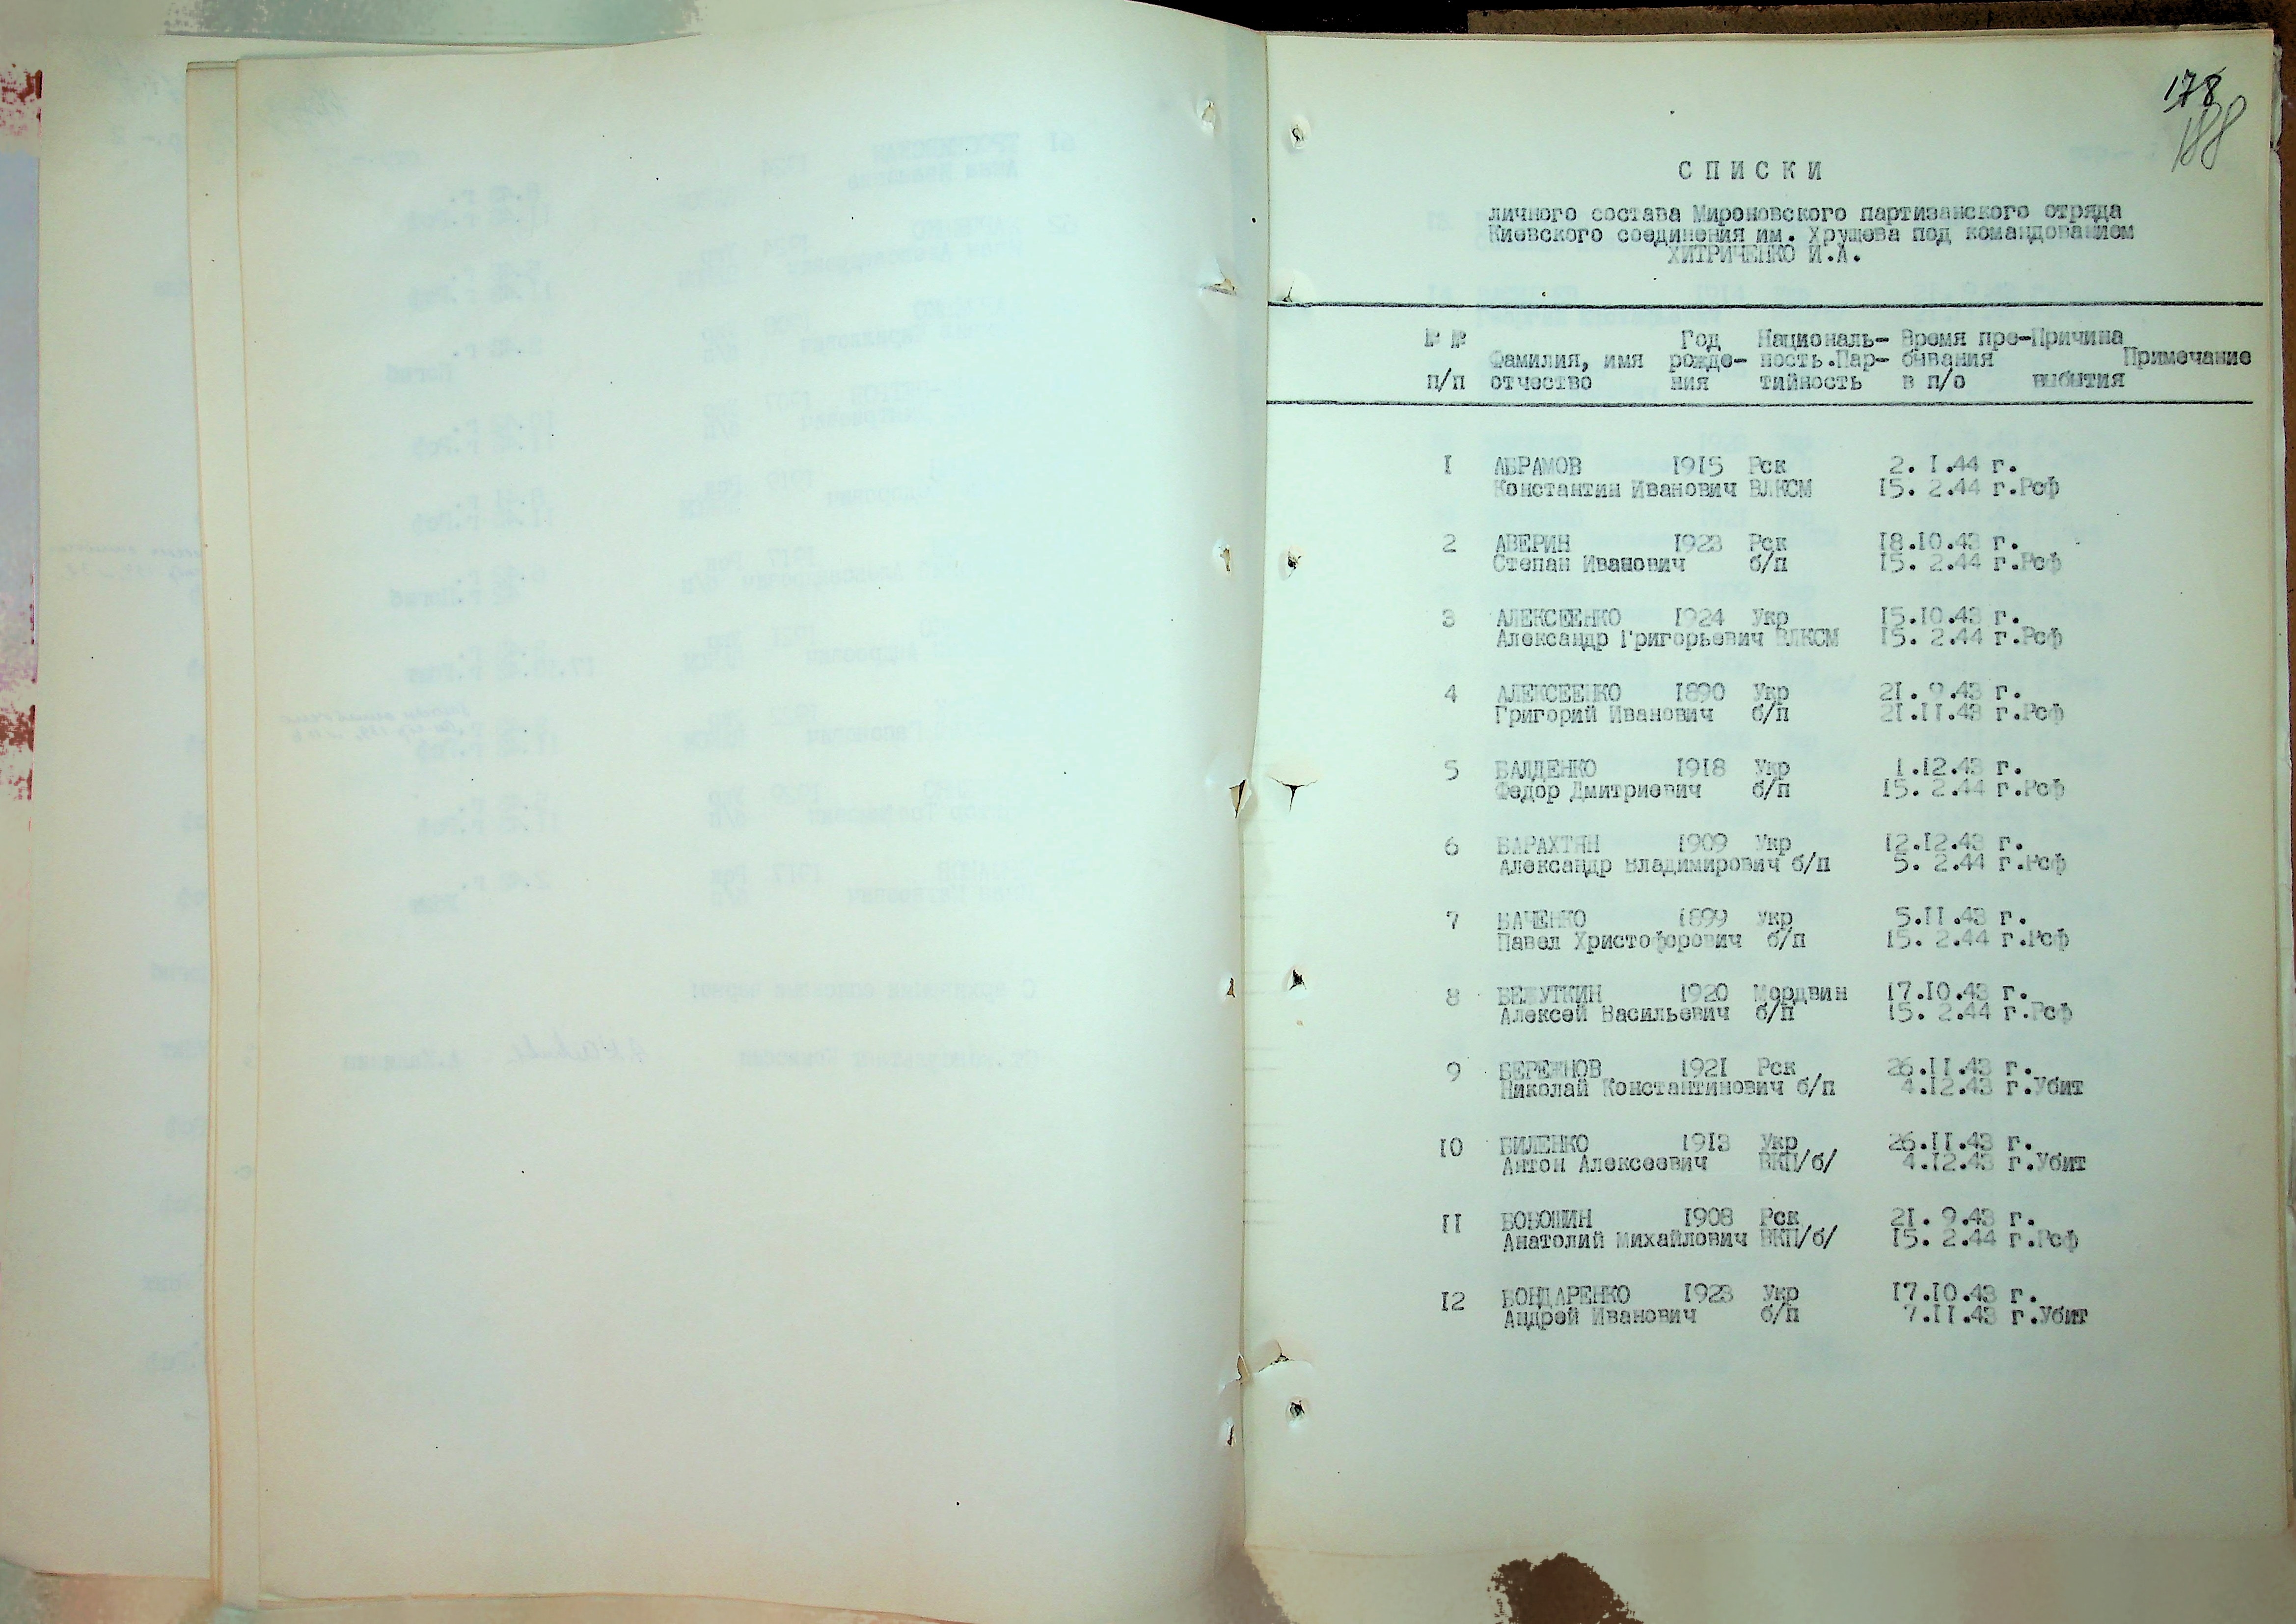 178
188
СПИСКИ
личного состава Мироновского партизанского отряда
Киевского соединения им. Хрущева под командованием
ХИТРИЧЕНКО И.А.
№ № Год Националь- Время пре- Причина
Фамилия, имя рожде- ность.Пар- бывания Примечание
п/п отчество ния тийность в п/о выбытия
1 АБРАМОВ 1915 Рск 2. 1.44 г.
Константин Иванович ВЛКСМ 15. 2.44 г.Рсф
2 АВЕРИН 1923 Рск 18.10.43 г.
Степан Иванович б/п 15. 2.44 г.Рсф
3 АЛЕКСЕЕНКО 1924 Укр 15.10.43 г.
Александр Григорьевич ВЛКСМ 15. 2.44 г.Рсф
4 АЛЕКСЕЕНКО 1890 Укр 21. 9.43 г.
Григорий Иванович б/п 21.11.43 г.Рсф
5 БАЛДЕНКО 1918 Укр 1.12.43 г.
Федор Дмитриевич б/п 15. 2.44 г.Рсф
6 БАРАХТЯН 1909 Укр 12.12.43 г.
Александр Владимирович б/п 5. 2.44 г.Рсф
7 БАЧЕНКО 1899 Укр 5.11.43 г.
Павел Христофорович б/п 15. 2.44 г.Рсф
8 БЕЖУТКИН 1920 Мордвин 17.10.43 г.
Алексей Васильевич б/п 15. 2.44 г.Рсф
9 БЕРЕЖНОВ 1921 Рск 26.11.43 г.
Николай Константинович б/п 4.12.43 г.Убит
10 БИЛЕНКО 1913 Укр 26.11.43 г.
Антон Алексеевич ВКП/б/ 4.12.43 г.Убит
11 БОБОШИН 1908 Рск 21. 9.43 г.
Анатолий Михайлович ВКП/б/ 15. 2.44 г.Рсф
12 БОНДАРЕНКО 1923 Укр 17.10.43 г.
Андрей Иванович б/п 7.11.43 г.Убит